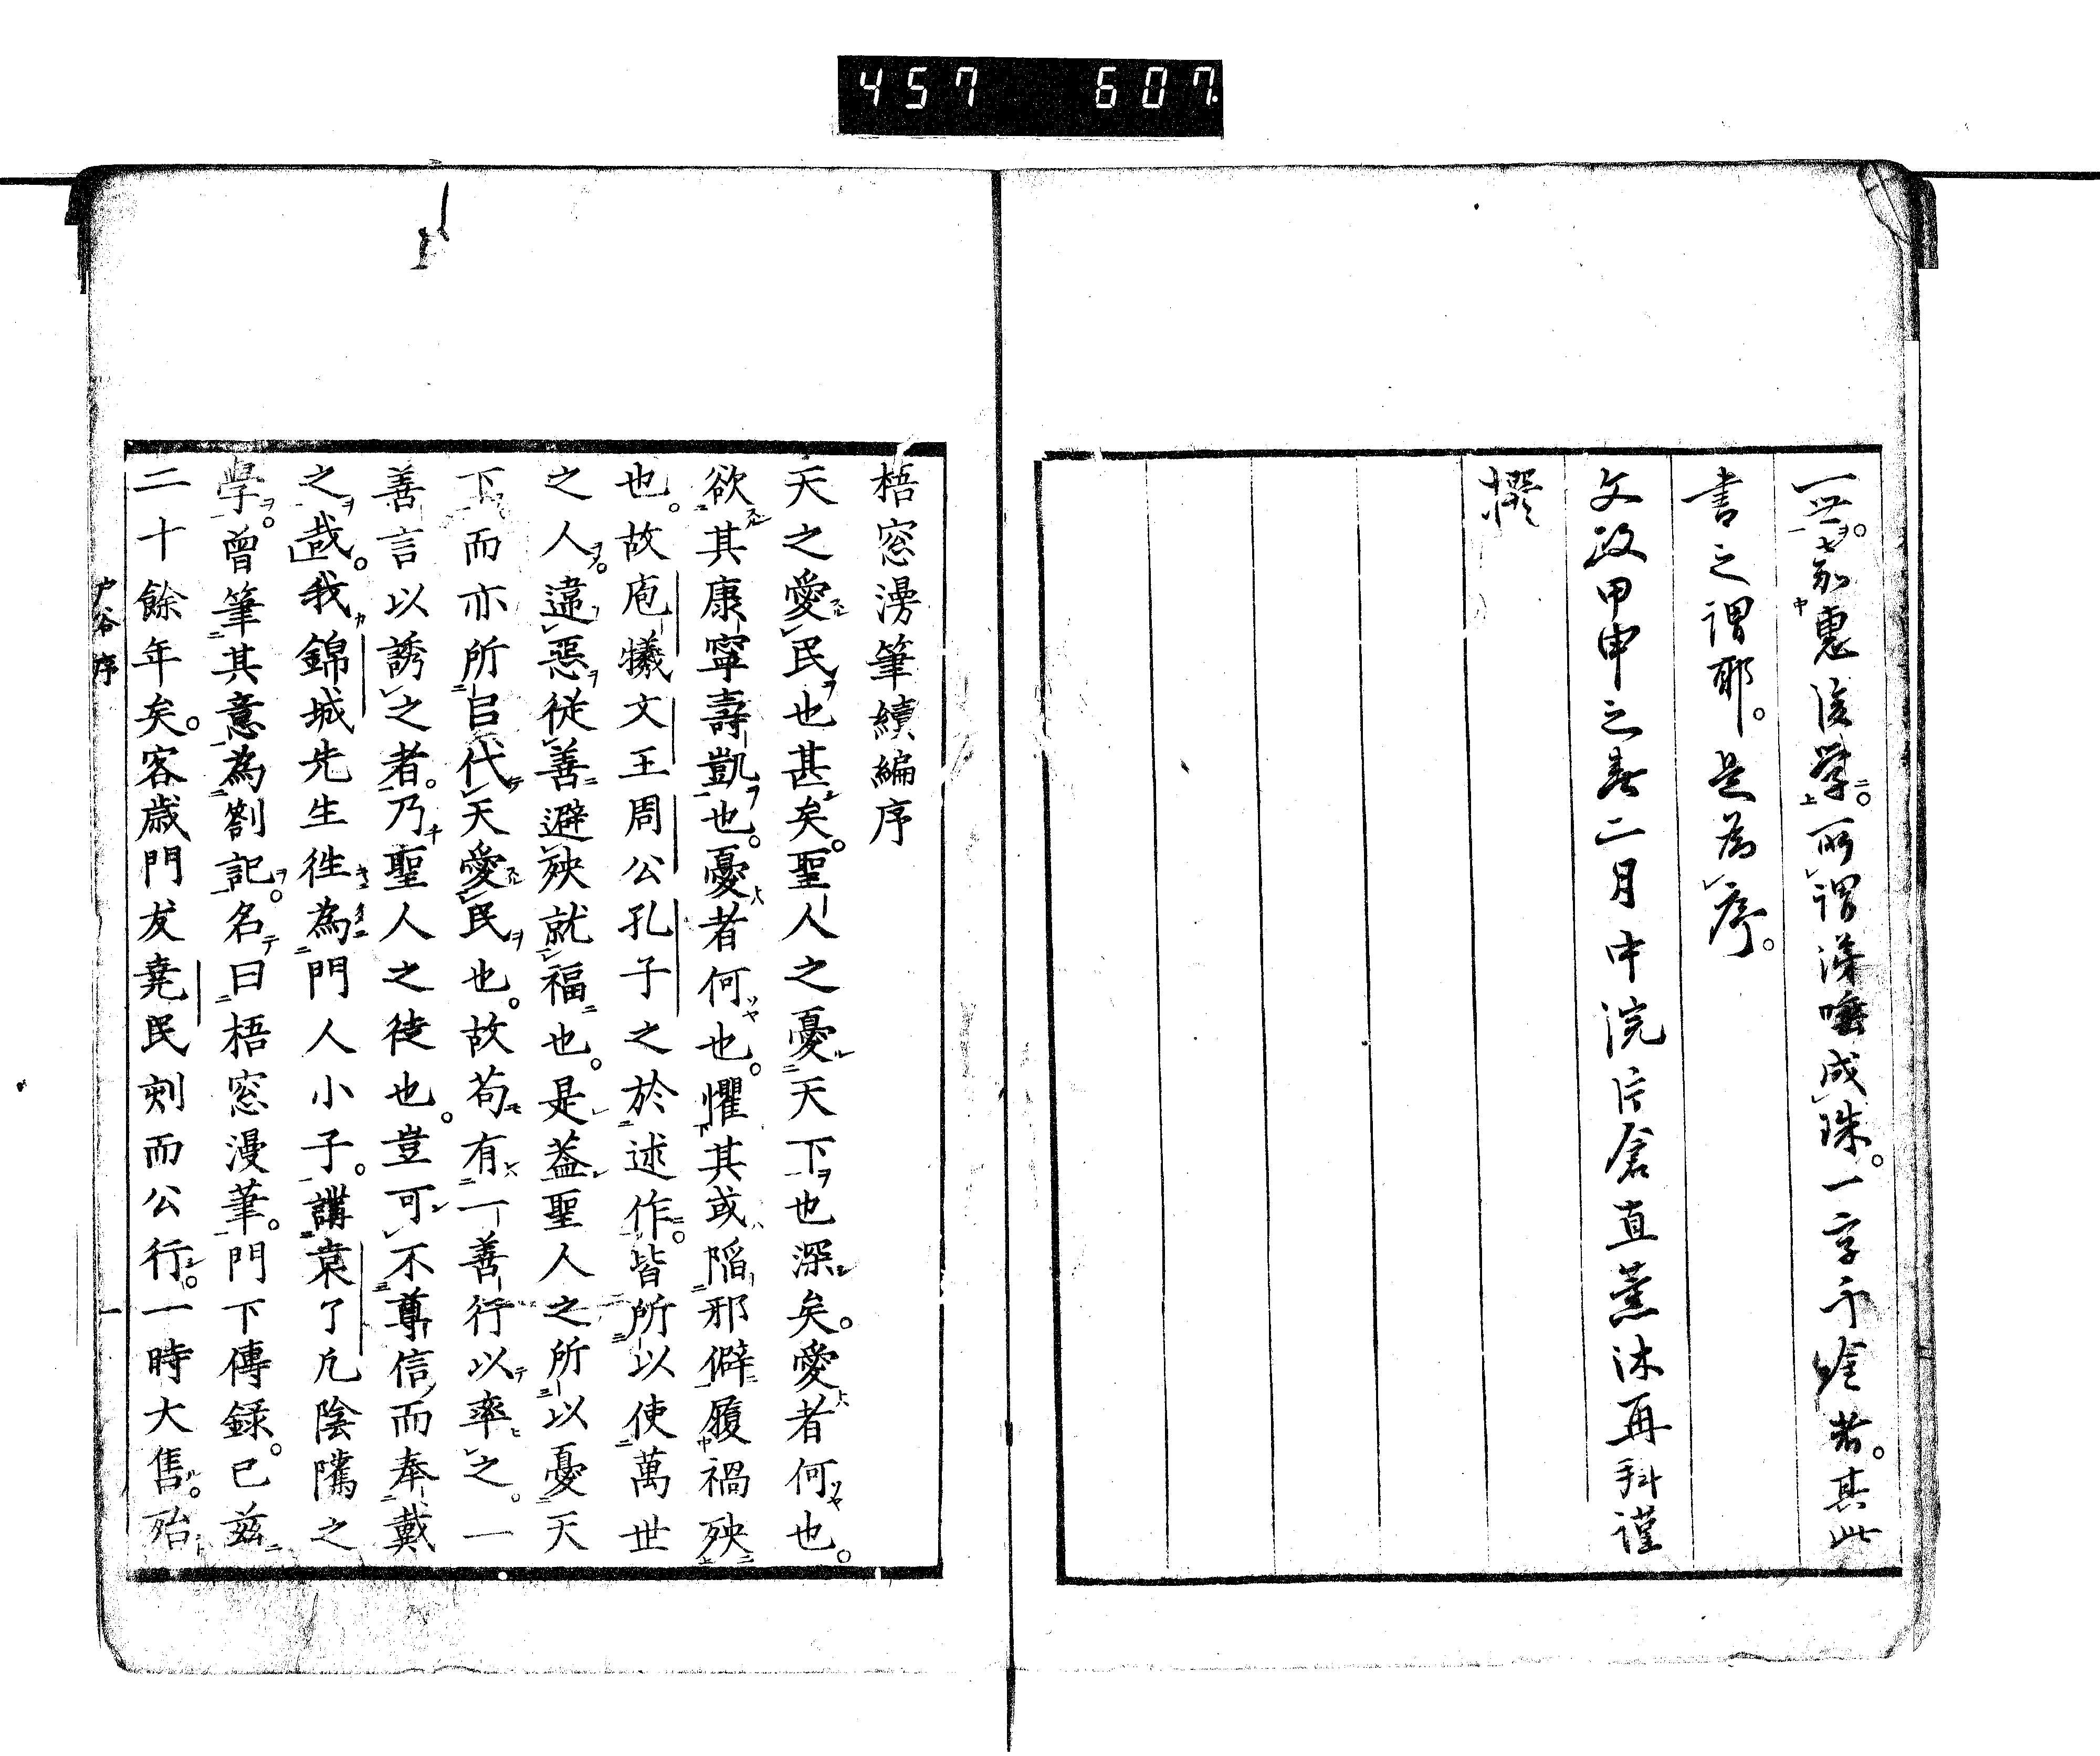 457 607
一世。嘉惠後學。所謂涕唾成珠。一字千金者。其此
書之謂耶。是為序。
文政甲申之春二月中浣片倉直薰沐再拜謹
撰
梧窓漫筆續編序
天之愛民也甚矣。聖人之憂天下也深矣。愛者何也。
欲其康寧壽凱也。憂者何也。懼其或陷邪僻履禍殃
也。故庖犧文王周公孔子之於述作。皆所以使萬世
之人。違惡從善避殃就福也。是蓋聖人之所以憂天
下而亦所㠯代天愛民也。故苟有一善行以率之。一
善言以誘之者。乃聖人之徒也。豈可不尊信而奉戴
之哉。我錦城先生徃為門人小子。講袁了凡陰隲之
學。曾筆其意為劄記。名曰梧窓漫筆。門下傳錄。已茲
二十餘年矣。客歳門友堯民刻而公行。一時大售。殆
戸谷序
一